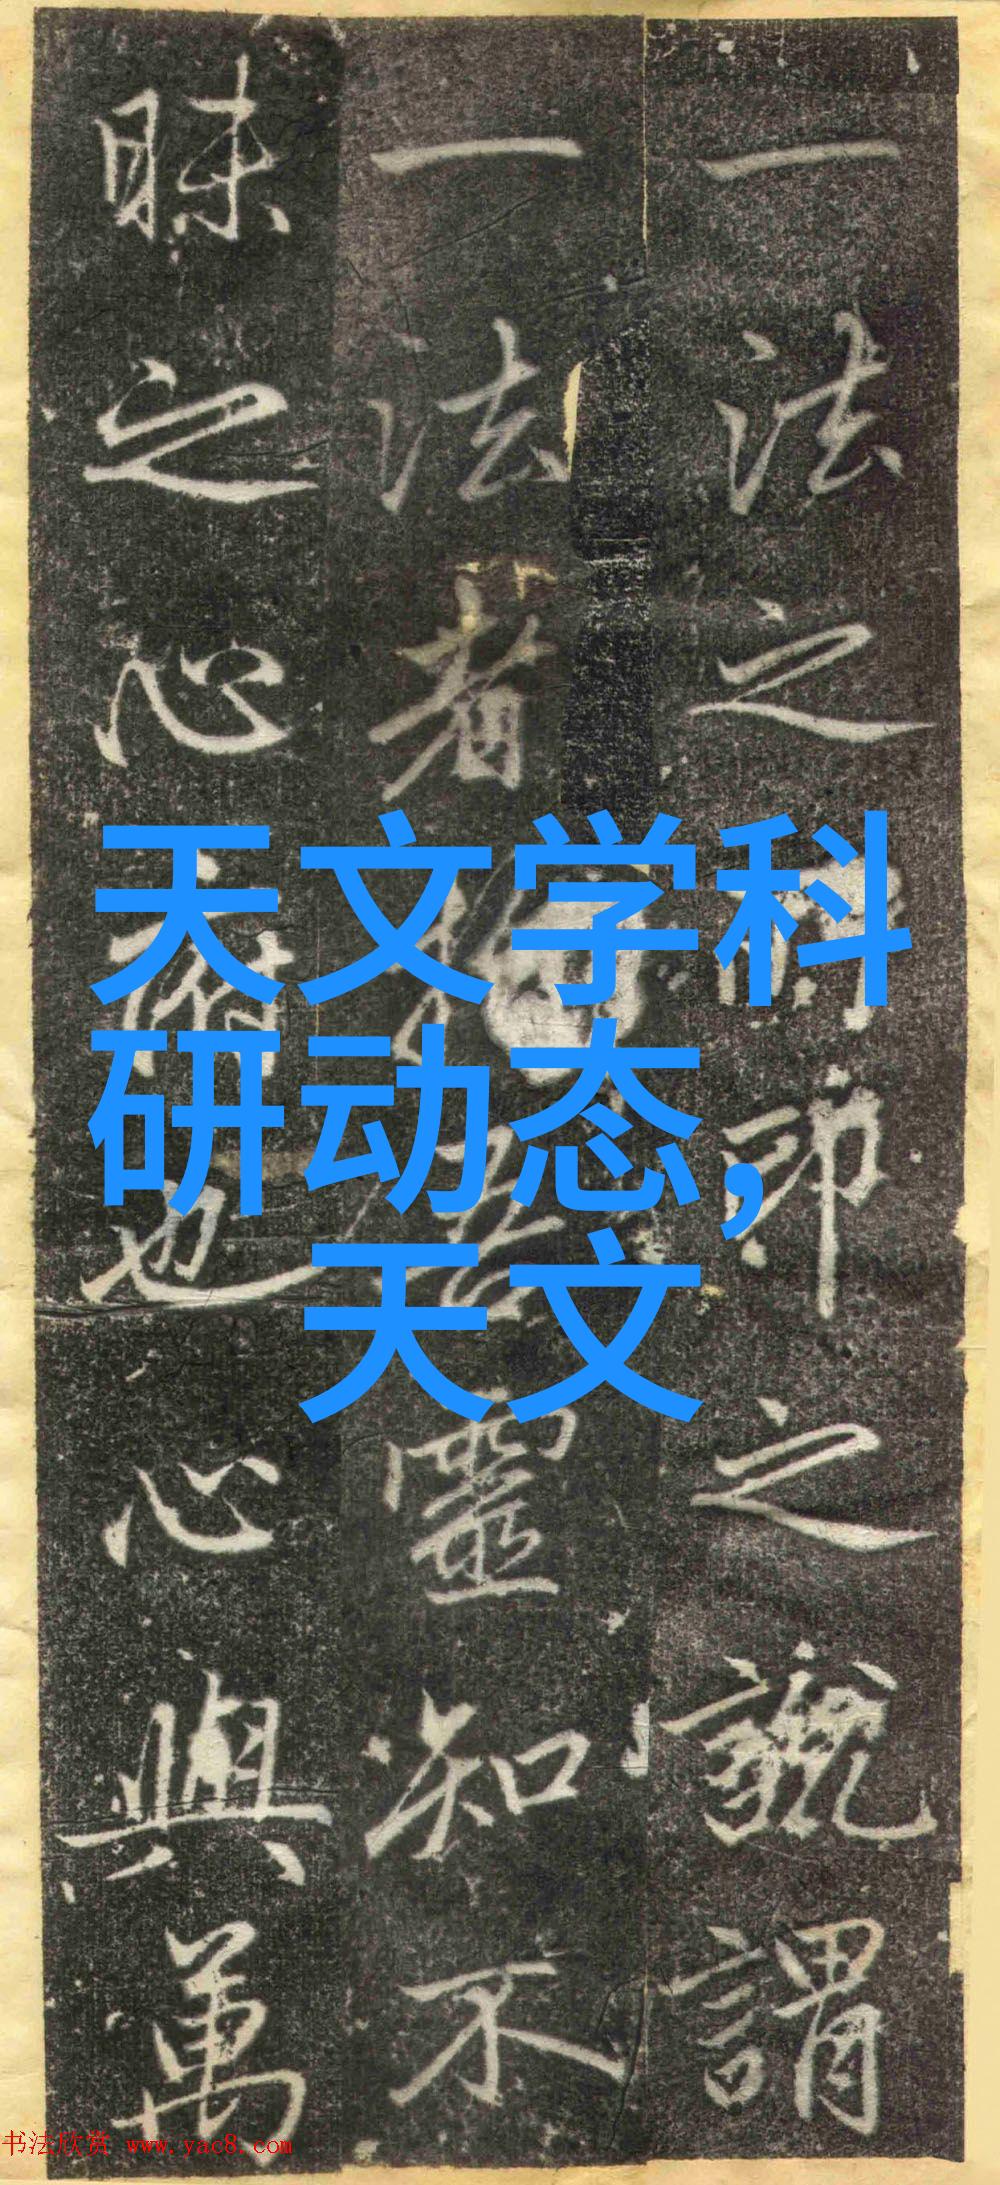 一法之印之號謂
一法者靈知不
昧之心也心與萬
天文学科
研动态,
天文
书法欣赏 www.yac8.com